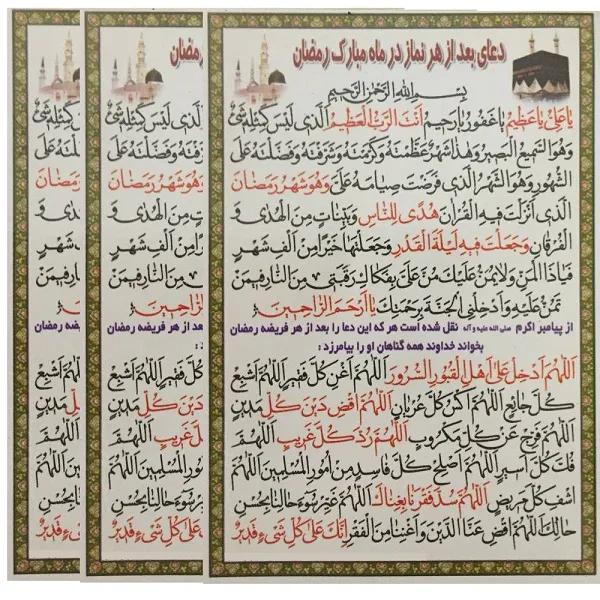 دعای بعد از هر نماز در ماه مبارک رمضان
بِسْمِ اللهِ الرَّحْمٰنِ الرَّحیمِ
یا عَلِیُّ یا عَظیمُ یا غَفُورُ یا رَحیمُ اَنْتَ الرَّبُّ الْعَظیمُ الَّذی لَیْسَ کَمِثْلِهِ شَیْءٌ
وَهُوَ السَّمیعُ الْبَصیرُ وَهٰذا شَهْرٌ عَظَّمْتَهُ وَکَرَّمْتَهُ وَشَرَّفْتَهُ وَفَضَّلْتَهُ عَلَی
الشُّهُورِ وَهُوَ الشَّهْرُ الَّذی فَرَضْتَ صِیامَهُ عَلَیَّ وَهُوَ شَهْرُ رَمَضانَ
الَّذی اَنْزَلْتَ فیهِ الْقُرْآنَ هُدًی لِلنّاسِ وَبَیِّناتٍ مِنَ الْهُدٰی وَ
الْفُرْقانِ وَجَعَلْتَ فیهِ لَیْلَةَ الْقَدْرِ وَجَعَلْتَها خَیْرًا مِنْ اَلْفِ شَهْرٍ
فَیاذَا الْمَنِّ وَلا یُمَنُّ عَلَیْکَ مُنَّ عَلَیَّ بِفَکاکِ رَقَبَتی مِنَ النّارِ فیمَنْ
تَمُنُّ عَلَیْهِ وَاَدْخِلْنِی الْجَنَّةَ بِرَحْمَتِکَ یا اَرْحَمَ الرّاحِمینَ
از پیامبر اکرم صلی الله علیه و آله نقل شده است هر که این دعا را بعد از هر فریضه رمضان
بخواند خداوند همه گناهان او را بیامرزد :
اَللّٰهُمَّ اَدْخِلْ عَلٰی اَهْلِ الْقُبُورِ السُّرُورَ اَللّٰهُمَّ اَغْنِ کُلَّ فَقیرٍ اَللّٰهُمَّ اَشْبِعْ
کُلَّ جائِعٍ اَللّٰهُمَّ اکْسُ کُلَّ عُرْیانٍ اَللّٰهُمَّ اقْضِ دَیْنَ کُلِّ مَدینٍ
اَللّٰهُمَّ فَرِّجْ عَنْ کُلِّ مَکْرُوبٍ اَللّٰهُمَّ رُدَّ کُلَّ غَریبٍ اَللّٰهُمَّ
فُکَّ کُلَّ اَسیرٍ اَللّٰهُمَّ اَصْلِحْ کُلَّ فاسِدٍ مِنْ اُمُورِ الْمُسْلِمینَ اَللّٰهُمَّ
اشْفِ کُلَّ مَریضٍ اَللّٰهُمَّ سُدَّ فَقْرَنا بِغِناکَ اَللّٰهُمَّ غَیِّرْ سُوءَ حالِنا بِحُسْنِ
حالِکَ اَللّٰهُمَّ اقْضِ عَنَّا الدَّیْنَ وَاَغْنِنا مِنَ الْفَقْرِ اِنَّکَ عَلٰی کُلِّ شَیْءٍ قَدیرٌ